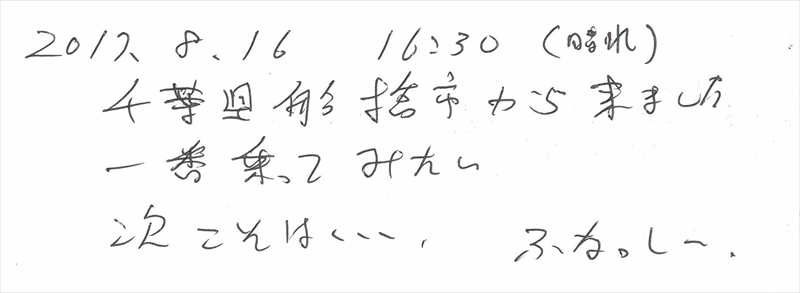 2017. 8. 16 16:30 (晴れ)
千葉県船橋市から来ました
一番乗ってみたい
次こそは、、、. ふなっしー.